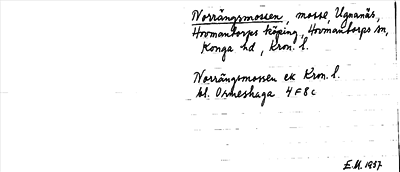 Norrängsmossen, mosse, Ugnanäs,
Hovmantorps köping, Hovmantorps sn,
Konga hd, Kron. l.
Norrängsmossen ek Kron. l.
bl. Osmeshaga 4F8c
E.M. 1957